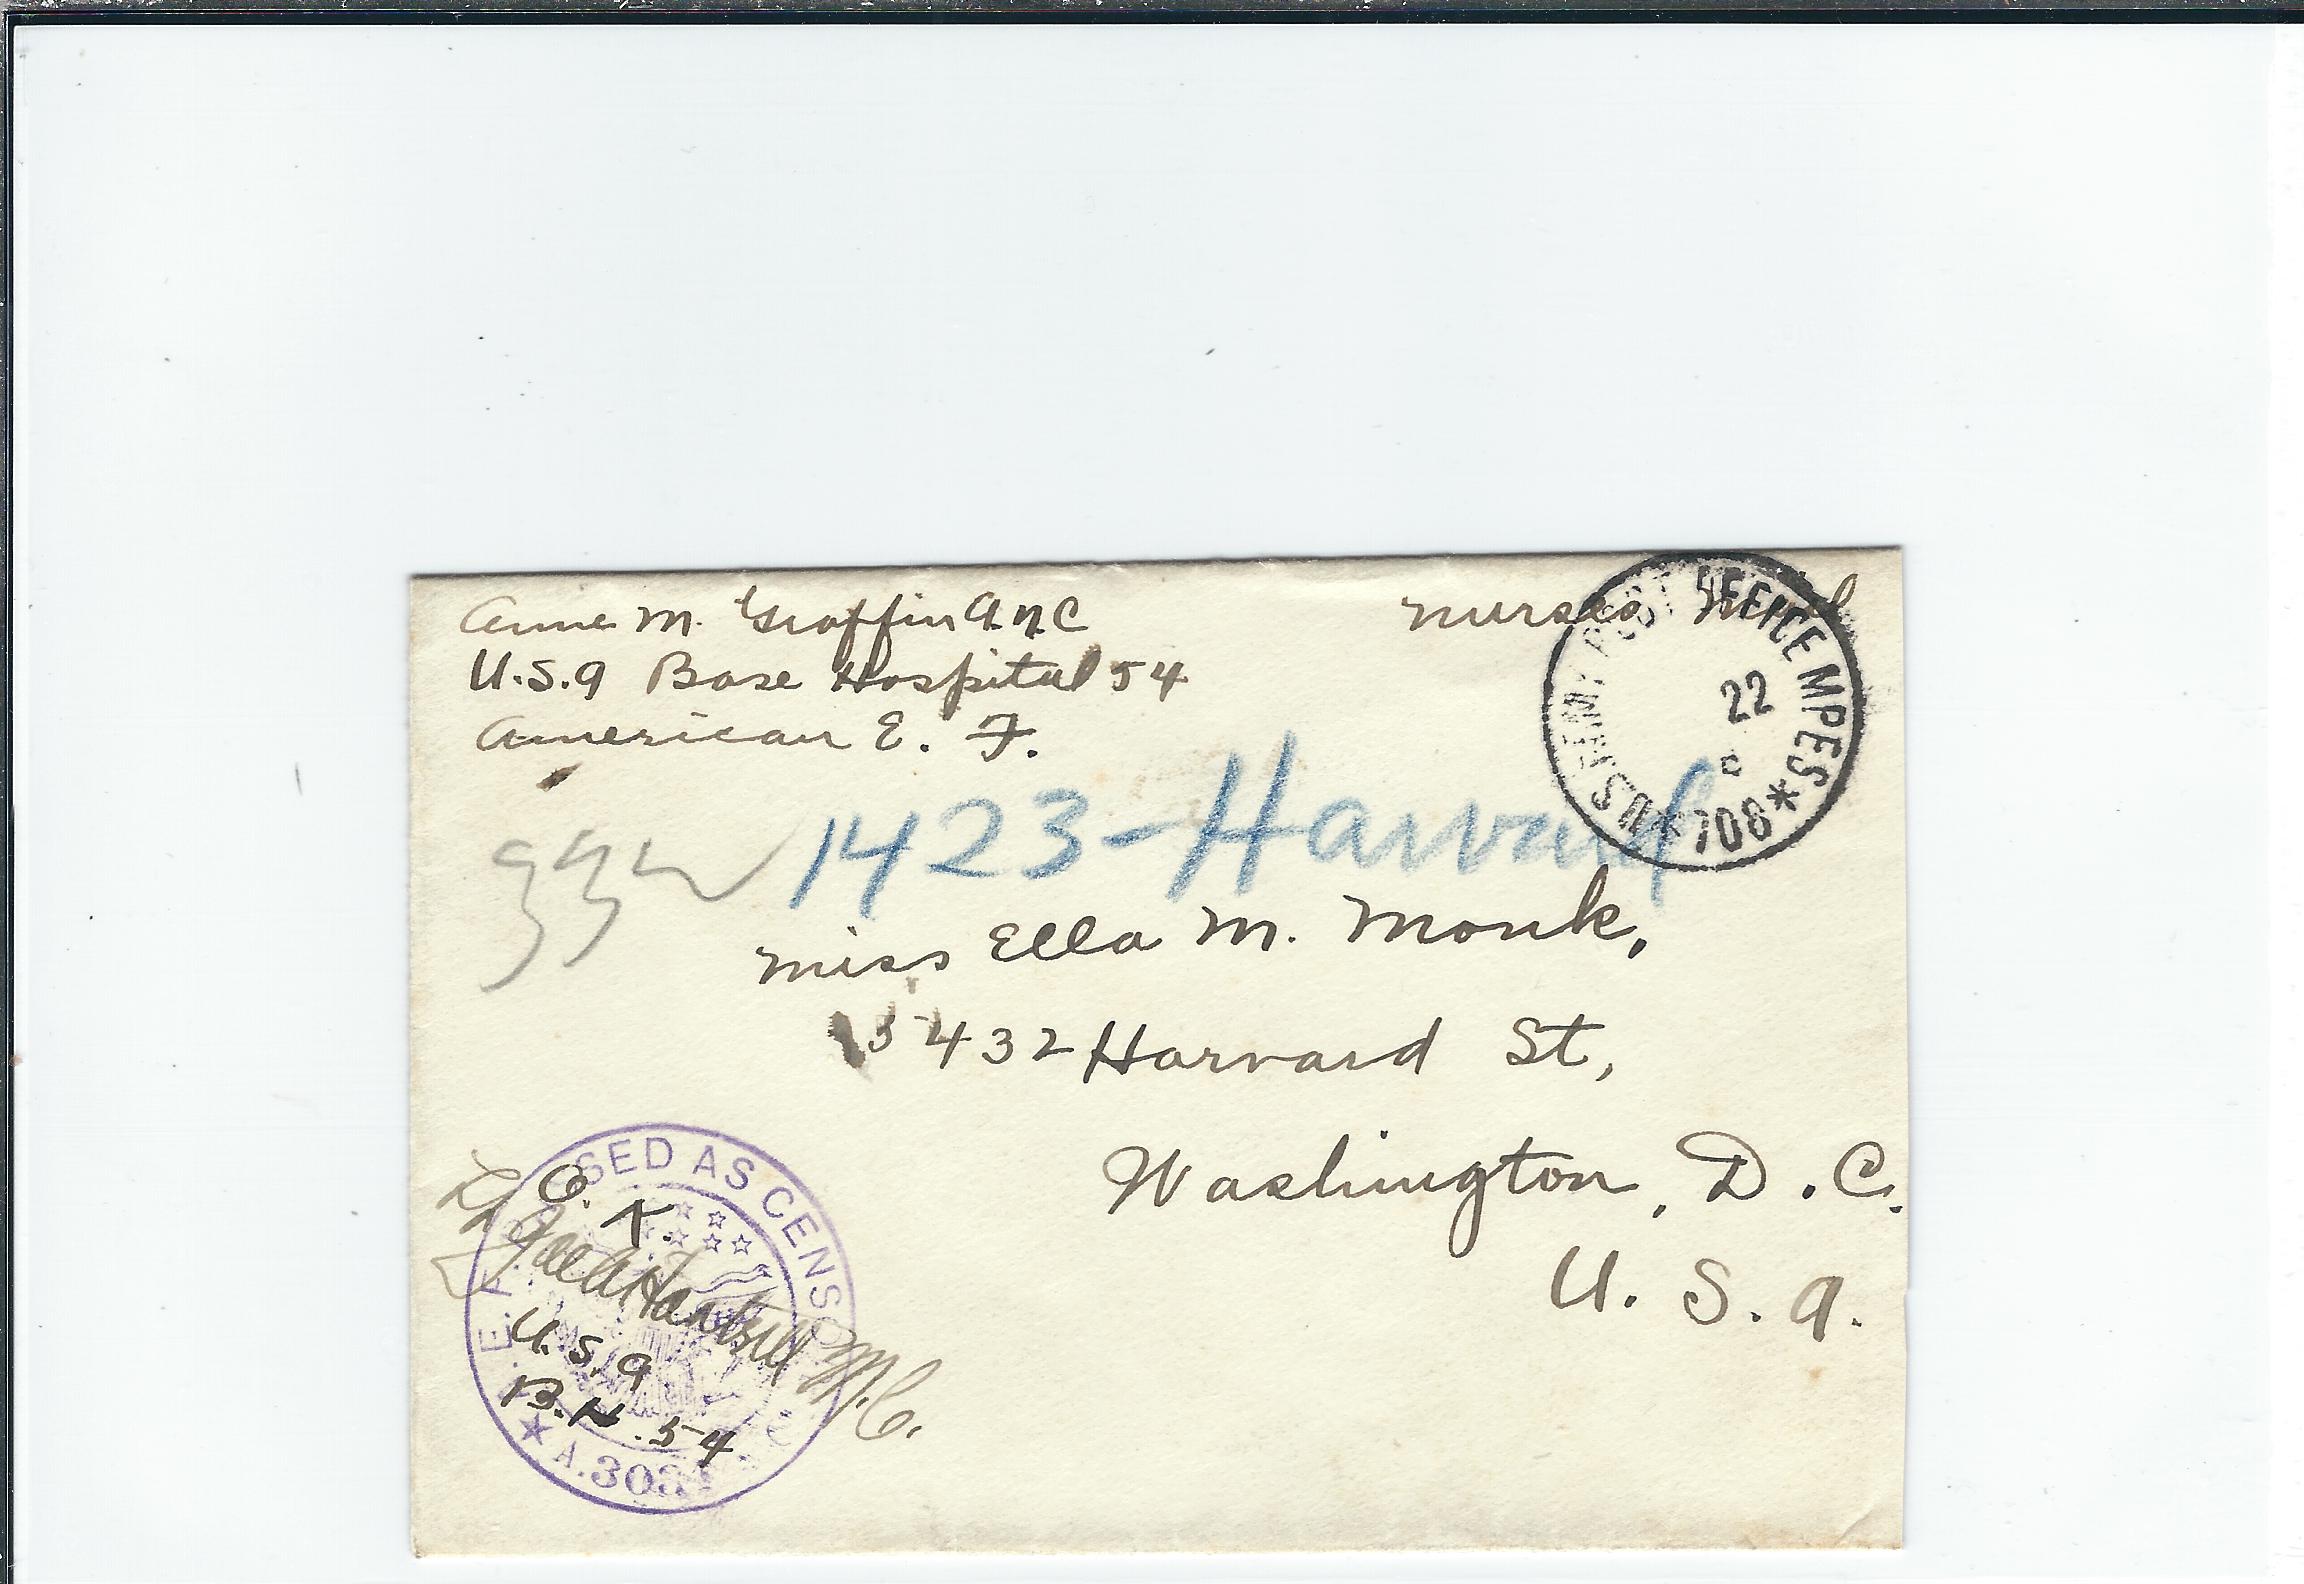 Anne M. Groffin A.N.C
U.S.A Base Hospital 54
American E. F.
nurses mail
U.S. ARMY POST OFFICE MPES * 708 *
22
1423-Harvard
Miss Ella M. Monk,
5432 Harvard St,
Washington, D.C.
U. S. A.
A.E.F. PASSED AS CENSORED
O. K.
M.C.
U.S.A
B.H. 54
A.303